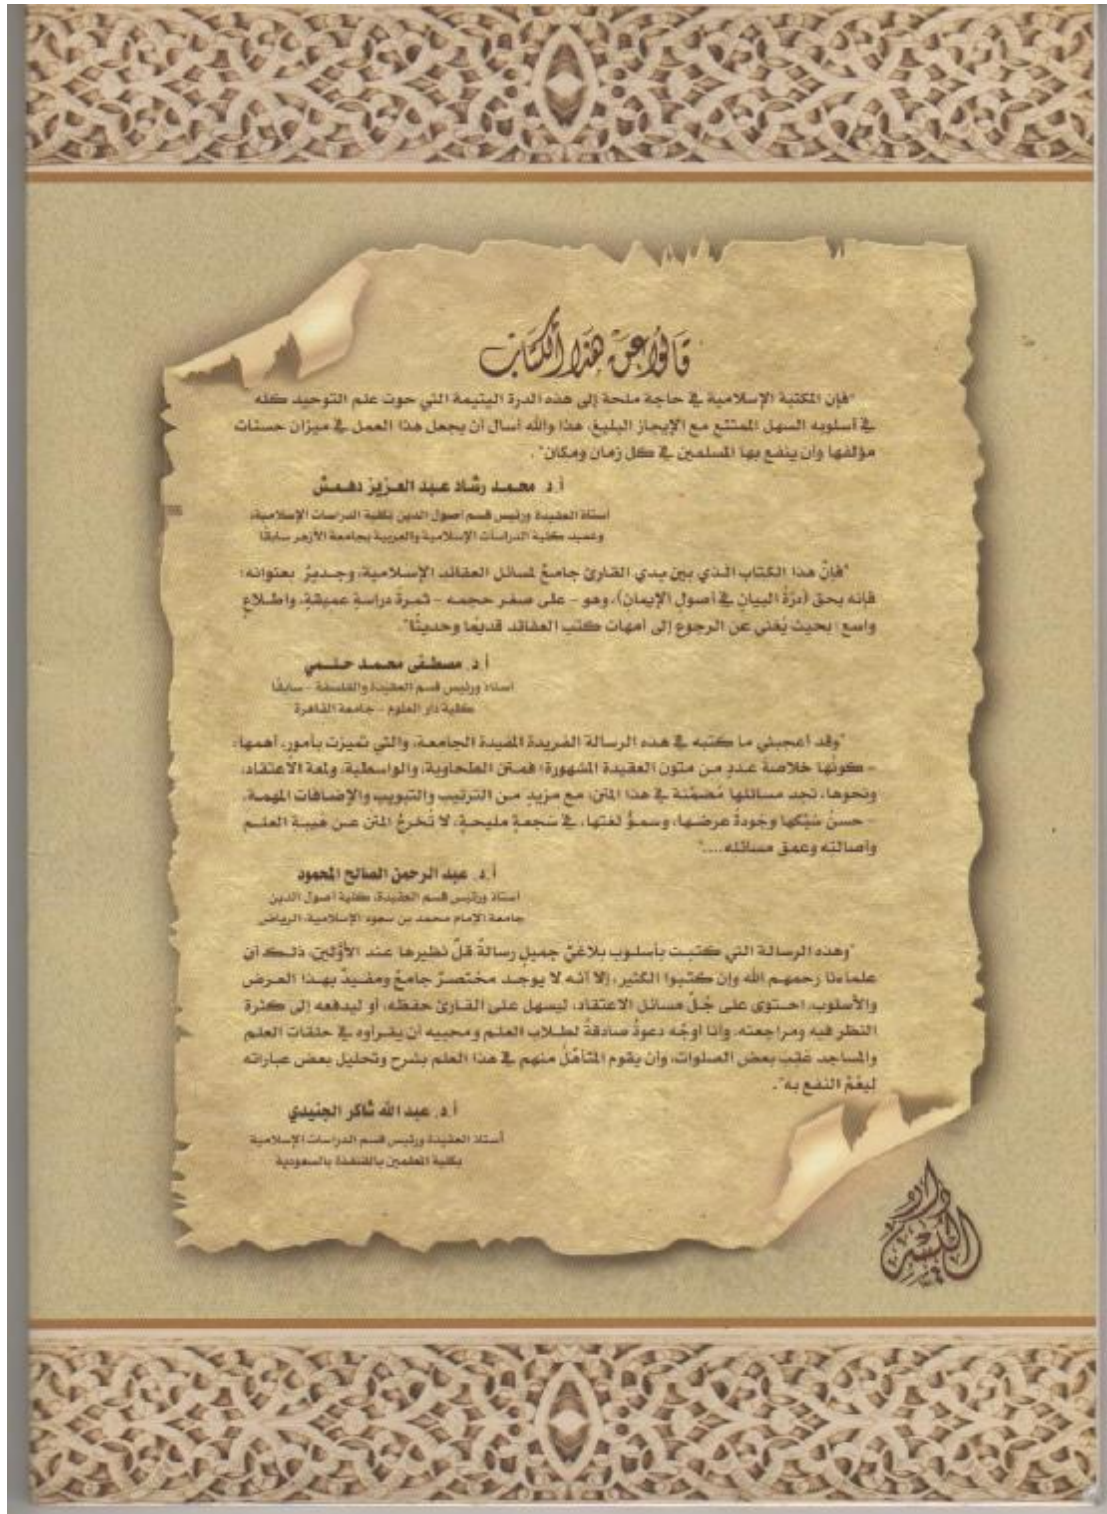 قالوا عن هذا الكتاب
"فإن المكتبة الإسلامية في حاجة ملحة إلى هذه الدرة اليتيمة التي حوت علم التوحيد كله
في أسلوبه السهل الممتنع مع الإيجاز البليغ، هذا والله أسال أن يجعل هذا العمل في ميزان حسنات
مؤلفها وأن ينفع بها المسلمين في كل زمان ومكان".
أ.د. محمد رشاد عبد العزيز دهمش
أستاذ العقيدة ورئيس قسم أصول الدين بكلية الدراسات الإسلامية،
وعميد كلية الدراسات الإسلامية والعربية بجامعة الأزهر سابقًا
"فإنّ هذا الكتاب الذي بين يدي القارئ جامعٌ لمسائل العقائد الإسلامية، وجديرٌ بعنوانه؛
فإنه بحق (درّةُ البيانِ في أصولِ الإيمانِ)، وهو - على صغر حجمه - ثمرةُ دراسةٍ عميقةٍ، واطلاعٍ
واسع؛ بحيث يُغني عن الرجوع إلى أمهات كتب العقائد قديمًا وحديثًا".
أ.د. مصطفى محمد حلمي
أستاذ ورئيس قسم العقيدة والفلسفة - سابقًا
كلية دار العلوم - جامعة القاهرة
"وقد أعجبني ما كتبه في هذه الرسالة الفريدة المفيدة الجامعة، والتي تميزت بأمور، أهمها:
- كونُها خلاصةَ عددٍ من متون العقيدة المشهورة؛ فمتن الطحاوية، والواسطية، ولمعة الاعتقاد،
ونحوها، تجد مسائلها مُضمَّنة في هذا المتن، مع مزيدٍ من الترتيب والتبويب والإضافات المهمة.
- حسنُ سَبْكها وجَودةُ عرضها، وسموُّ لغتها، في سَجعةٍ مليحةٍ، لا تُخرجُ المتن عن هيبة العلم
وأصالته وعمق مسائله...."
أ.د. عبد الرحمن الصالح المحمود
أستاذ ورئيس قسم العقيدة، كلية أصول الدين
جامعة الإمام محمد بن سعود الإسلامية، الرياض
"وهذه الرسالة التي كتبت بأسلوب بلاغيٍّ جميلٍ رسالةٌ قلَّ نظيرها عند الأوَّلين، ذلك أن
علماءنا رحمهم الله وإن كتبوا الكثير، إلا أنه لا يوجد مختصرٌ جامعٌ ومفيدٌ بهذا العرض
والأسلوب، احتوى على جُلِّ مسائل الاعتقاد، ليسهل على القارئ حفظه، أو ليدفعه إلى كثرة
النظر فيه ومراجعته، وأنا أوجّه دعوةً صادقةً لطلاب العلم ومحبيه أن يقرأوه في حلقات العلم
والمساجد عَقِب بعض الصلوات، وأن يقوم المتأهّلُ منهم في هذا العلم بشرح وتحليل بعض عباراته
ليعُمَّ النفع به".
أ.د. عبد الله شاكر الجنيدي
أستاذ العقيدة ورئيس قسم الدراسات الإسلامية
بكلية المعلمين بالقنفذة بالسعودية
دار اليسر